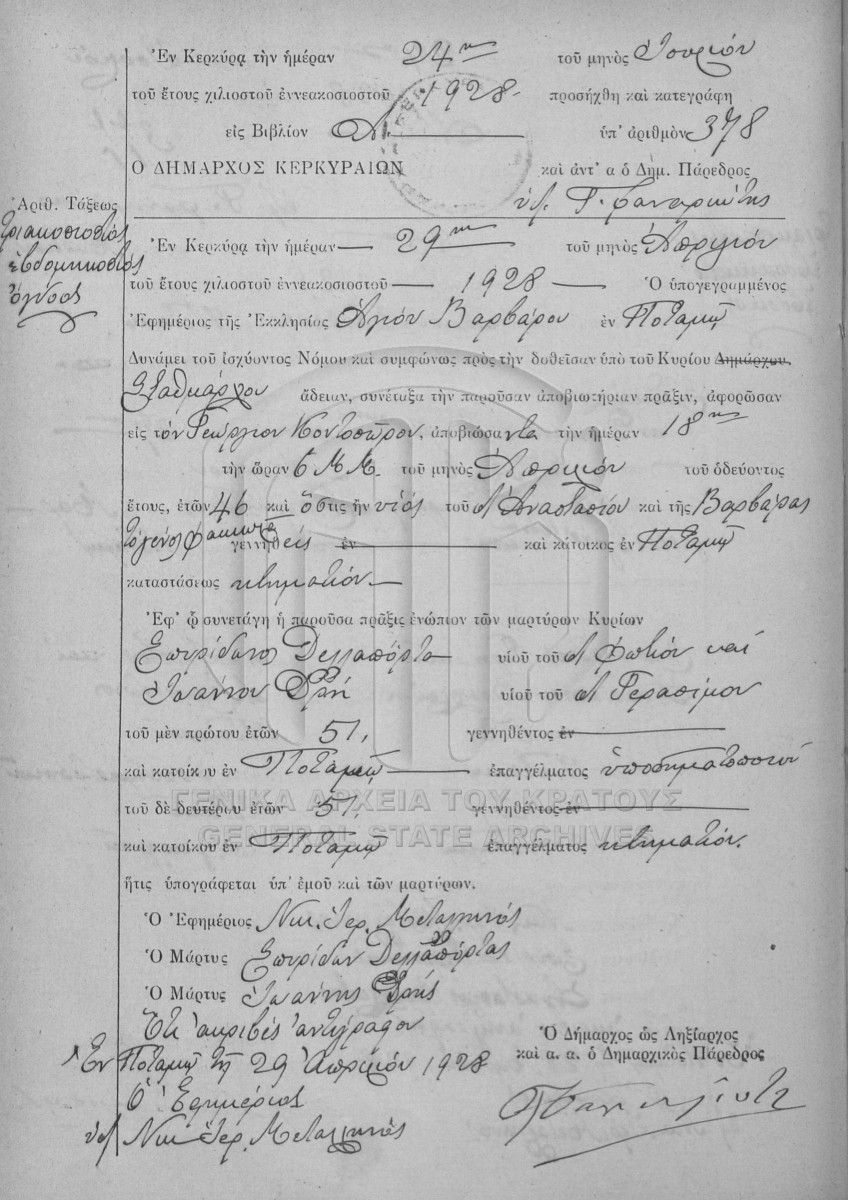 Ἐν Κερκύρᾳ τὴν ἡμέραν 24ην τοῦ μηνὸς Ἰουνίου
τοῦ ἔτους χιλιοστοῦ ἐννεακοσιοστοῦ 1928 προσήχθη καὶ κατεγράφη
εἰς Βιβλίον ὑπ' ἀριθμὸν 378
Ο ΔΗΜΑΡΧΟΣ ΚΕΡΚΥΡΑΙΩΝ καὶ ἀντ' α ὁ Δημ. Πάρεδρος
Ἀριθ. Τάξεως
Τριακοσιοστὸς
ἑβδομηκοστὸς
ὄγδοος
Ἐν Κερκύρᾳ τὴν ἡμέραν 29ην τοῦ μηνὸς Ἀπριλίου
τοῦ ἔτους χιλιοστοῦ ἐννεακοσιοστοῦ 1928 Ὁ ὑπογεγραμμένος
Ἐφημέριος τῆς Ἐκκλησίας Ἁγίου Βαρβάρου ἐν Ποταμῷ
Δυνάμει τοῦ ἰσχύοντος Νόμου καὶ συμφώνως πρὸς τὴν δοθεῖσαν ὑπὸ τοῦ Κυρίου Δημάρχου
Σταθμάρχου ἄδειαν, συνέταξα τὴν παροῦσαν ἀποβιωτήριαν πρᾶξιν, ἀφορῶσαν
εἰς τὸν Γεώργιον Κοντοσπῦρον, ἀποβιώσαντα τὴν ἡμέραν 18ην
τὴν ὥραν 6 Μ.Μ. τοῦ μηνὸς Ἀπριλίου τοῦ ὁδεύοντος
ἔτους, ἐτῶν 46 καὶ ὅστις ἦν υἱὸς τοῦ Ἀναστασίου καὶ τῆς Βαρβάρας
γεννηθείς ἐν καὶ κάτοικος ἐν Ποταμῷ
καταστάσεως κτηματίου
Ἐφ' ᾧ συνετάγη ἡ παροῦσα πρᾶξις ἐνώπιον τῶν μαρτύρων Κυρίων
Σπυρίδωνος Δελλαπόρτα υἱοῦ τοῦ Φωτίου καὶ
Ἰωάννου υἱοῦ τοῦ Γερασίμου
τοῦ μὲν πρώτου ἐτῶν 51, γεννηθέντος ἐν
καὶ κατοίκου ἐν Ποταμῷ ἐπαγγέλματος ὑποδηματοποιοῦ
τοῦ δὲ δευτέρου ἐτῶν 51, γεννηθέντος ἐν
ΓΕΝΙΚΑ ΑΡΧΕΙΑ ΤΟΥ ΚΡΑΤΟΥΣ
GENERAL STATE ARCHIVES
καὶ κατοίκου ἐν Ποταμῷ ἐπαγγέλματος κτηματίου.
ἥτις ὑπογράφεται ὑπ' ἐμοῦ καὶ τῶν μαρτύρων.
Ὁ Ἐφημέριος Νικ. Ἱερ. Μεταλληνός
Ὁ Μάρτυς Σπυρίδων Δελλαπόρτας
Ὁ Μάρτυς Ἰωάννης
ἀκριβὲς ἀντίγραφον
Ἐν Ποταμῷ τῇ 29 Ἀπριλίου 1928
Ὁ Ἐφημέριος
Νικ. Ἱερ. Μεταλληνός
Ὁ Δήμαρχος ὡς Ληξίαρχος
καὶ α. α. ὁ Δημαρχικὸς Πάρεδρος